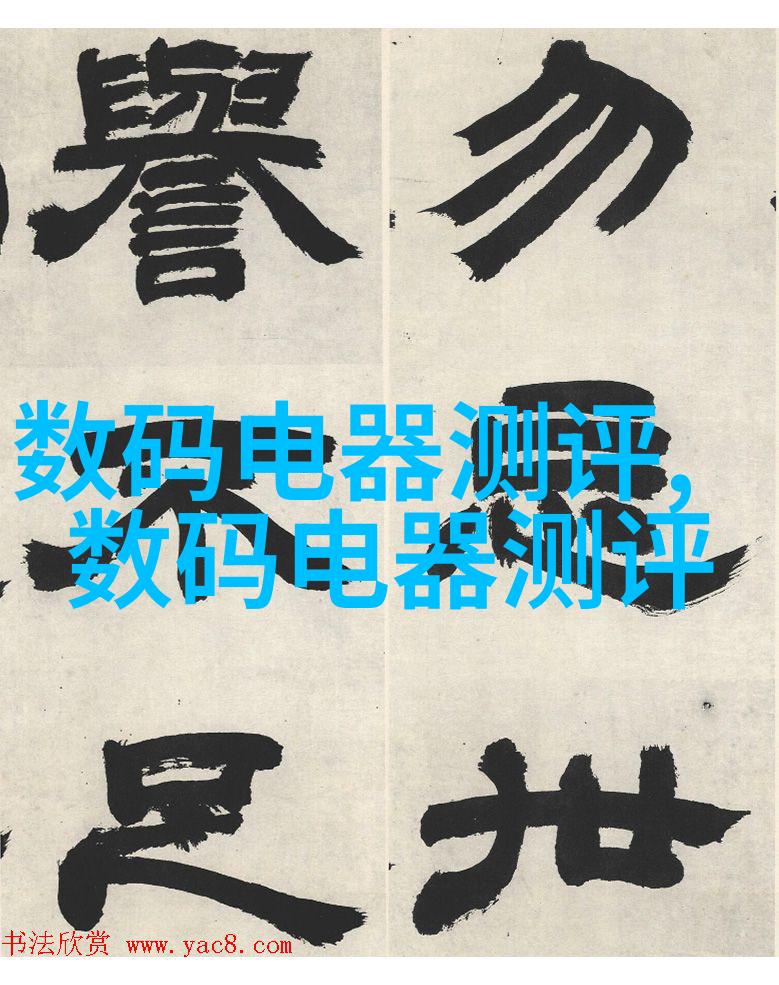 勿世
譽不足
数码电器测评,
数码电器测评
书法欣赏 www.yac8.com